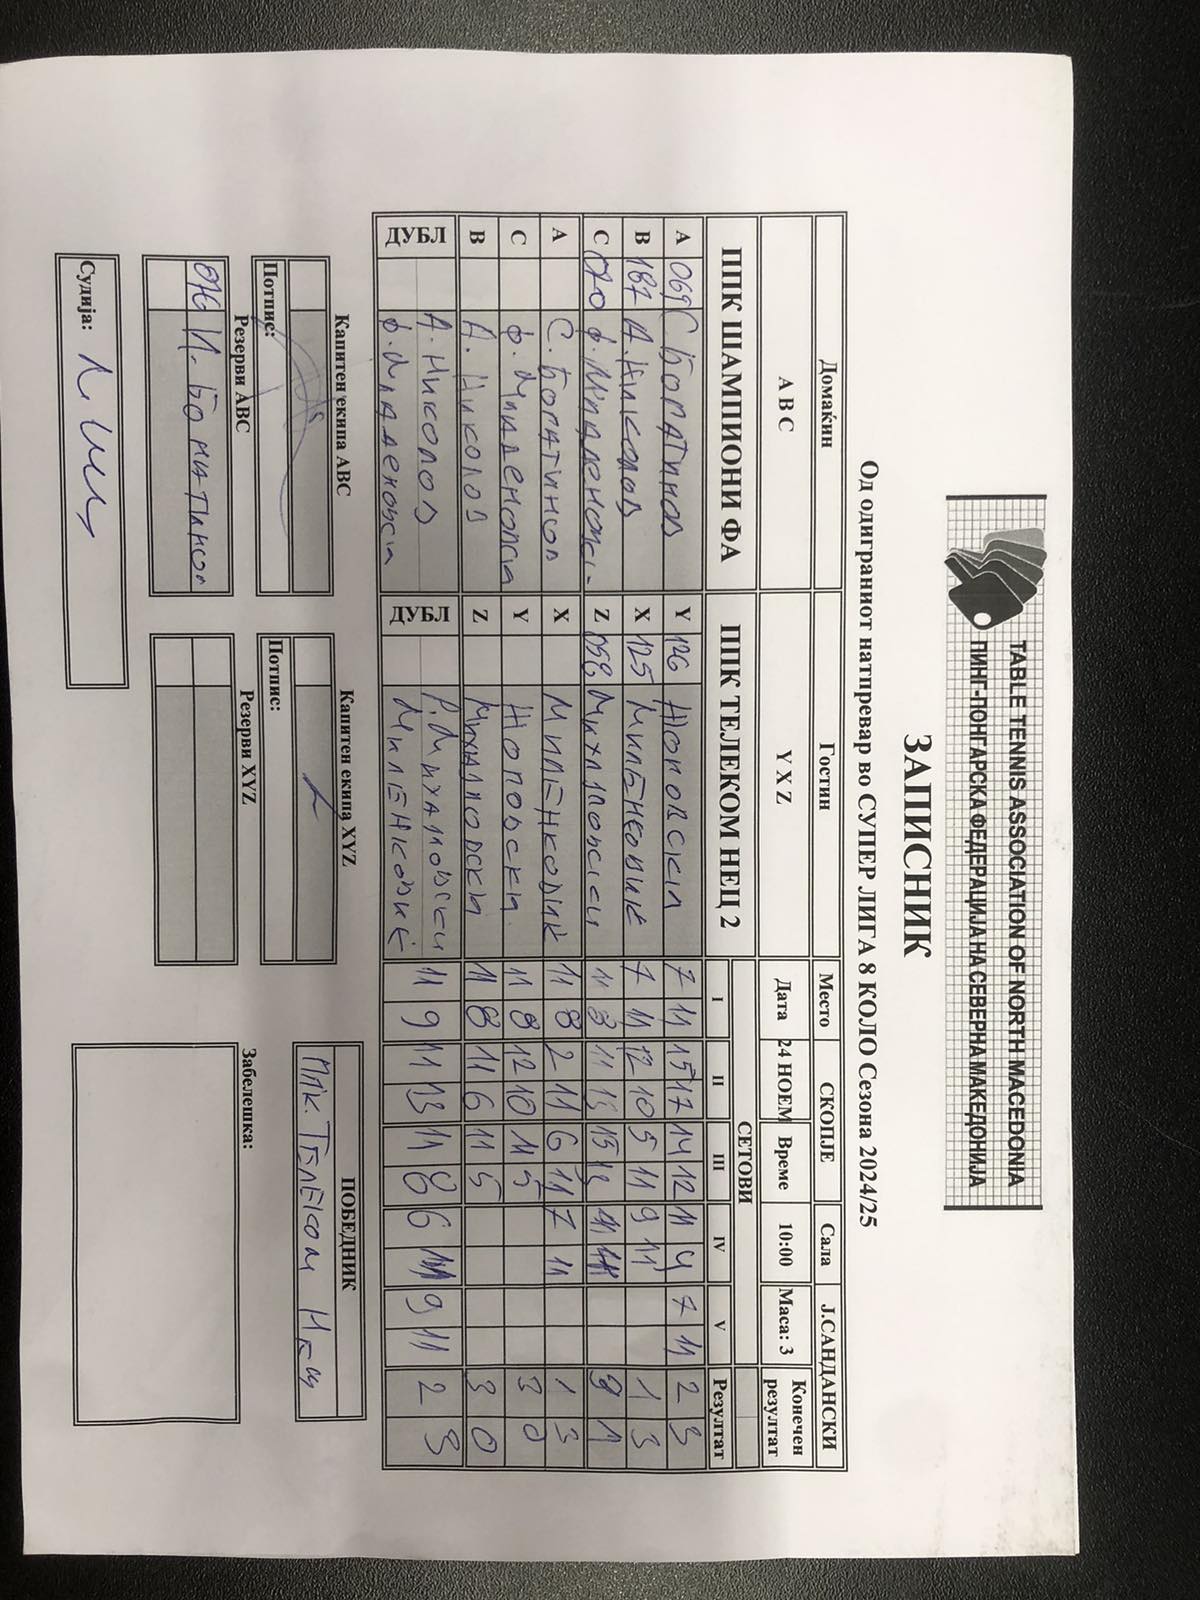 TABLE TENNIS ASSOCIATION OF NORTH MACEDONIA
ПИНГ-ПОНГАРСКА ФЕДЕРАЦИЈА НА СЕВЕРНА МАКЕДОНИЈА
ЗАПИСНИК
Од одиграниот натпревар во СУПЕР ЛИГА 8 КОЛО Сезона 2024/25
Домаќин Гостин Место СКОПЈЕ Сала Ј.САНДАНСКИ
A B C Y X Z Дата 24 НОЕМ Време 10:00 Маса: 3 Конечен резултат
ППК ШАМПИОНИ ФА ППК ТЕЛЕКОМ НЕЦ 2 СЕТОВИ
I II III IV V Резултат
A 069 С Богатинов Y 126 Жоповски 7 11 15 17 14 12 11 4 7 11 2 3
B 187 А. Николов X 125 Миленковиќ 7 11 12 10 5 11 9 11 1 3
C 070 Ф. Младеновс- Z 058 Михајловски 11 3 11 13 15 13 11 1
A С. Богатинов X Миленковиќ 11 8 2 11 6 11 7 11 1 3
C Ф. Младеновски Y Жоповски 11 8 12 10 11 5 3 0
B А. Николов Z Михајловски 11 8 11 6 11 5 3 0
ДУБЛ А. Николов Ф. Младеновски ДУБЛ Р. Михајловски Миленковиќ 11 9 11 13 11 8 6 11 9 11 2 3
Капитен екипа ABC Капитен екипа XYZ ПОБЕДНИК
Потпис: Потпис: ППК. Телеком
Резерви ABC Резерви XYZ Забелешка:
076 И. Богатинов
Судија: